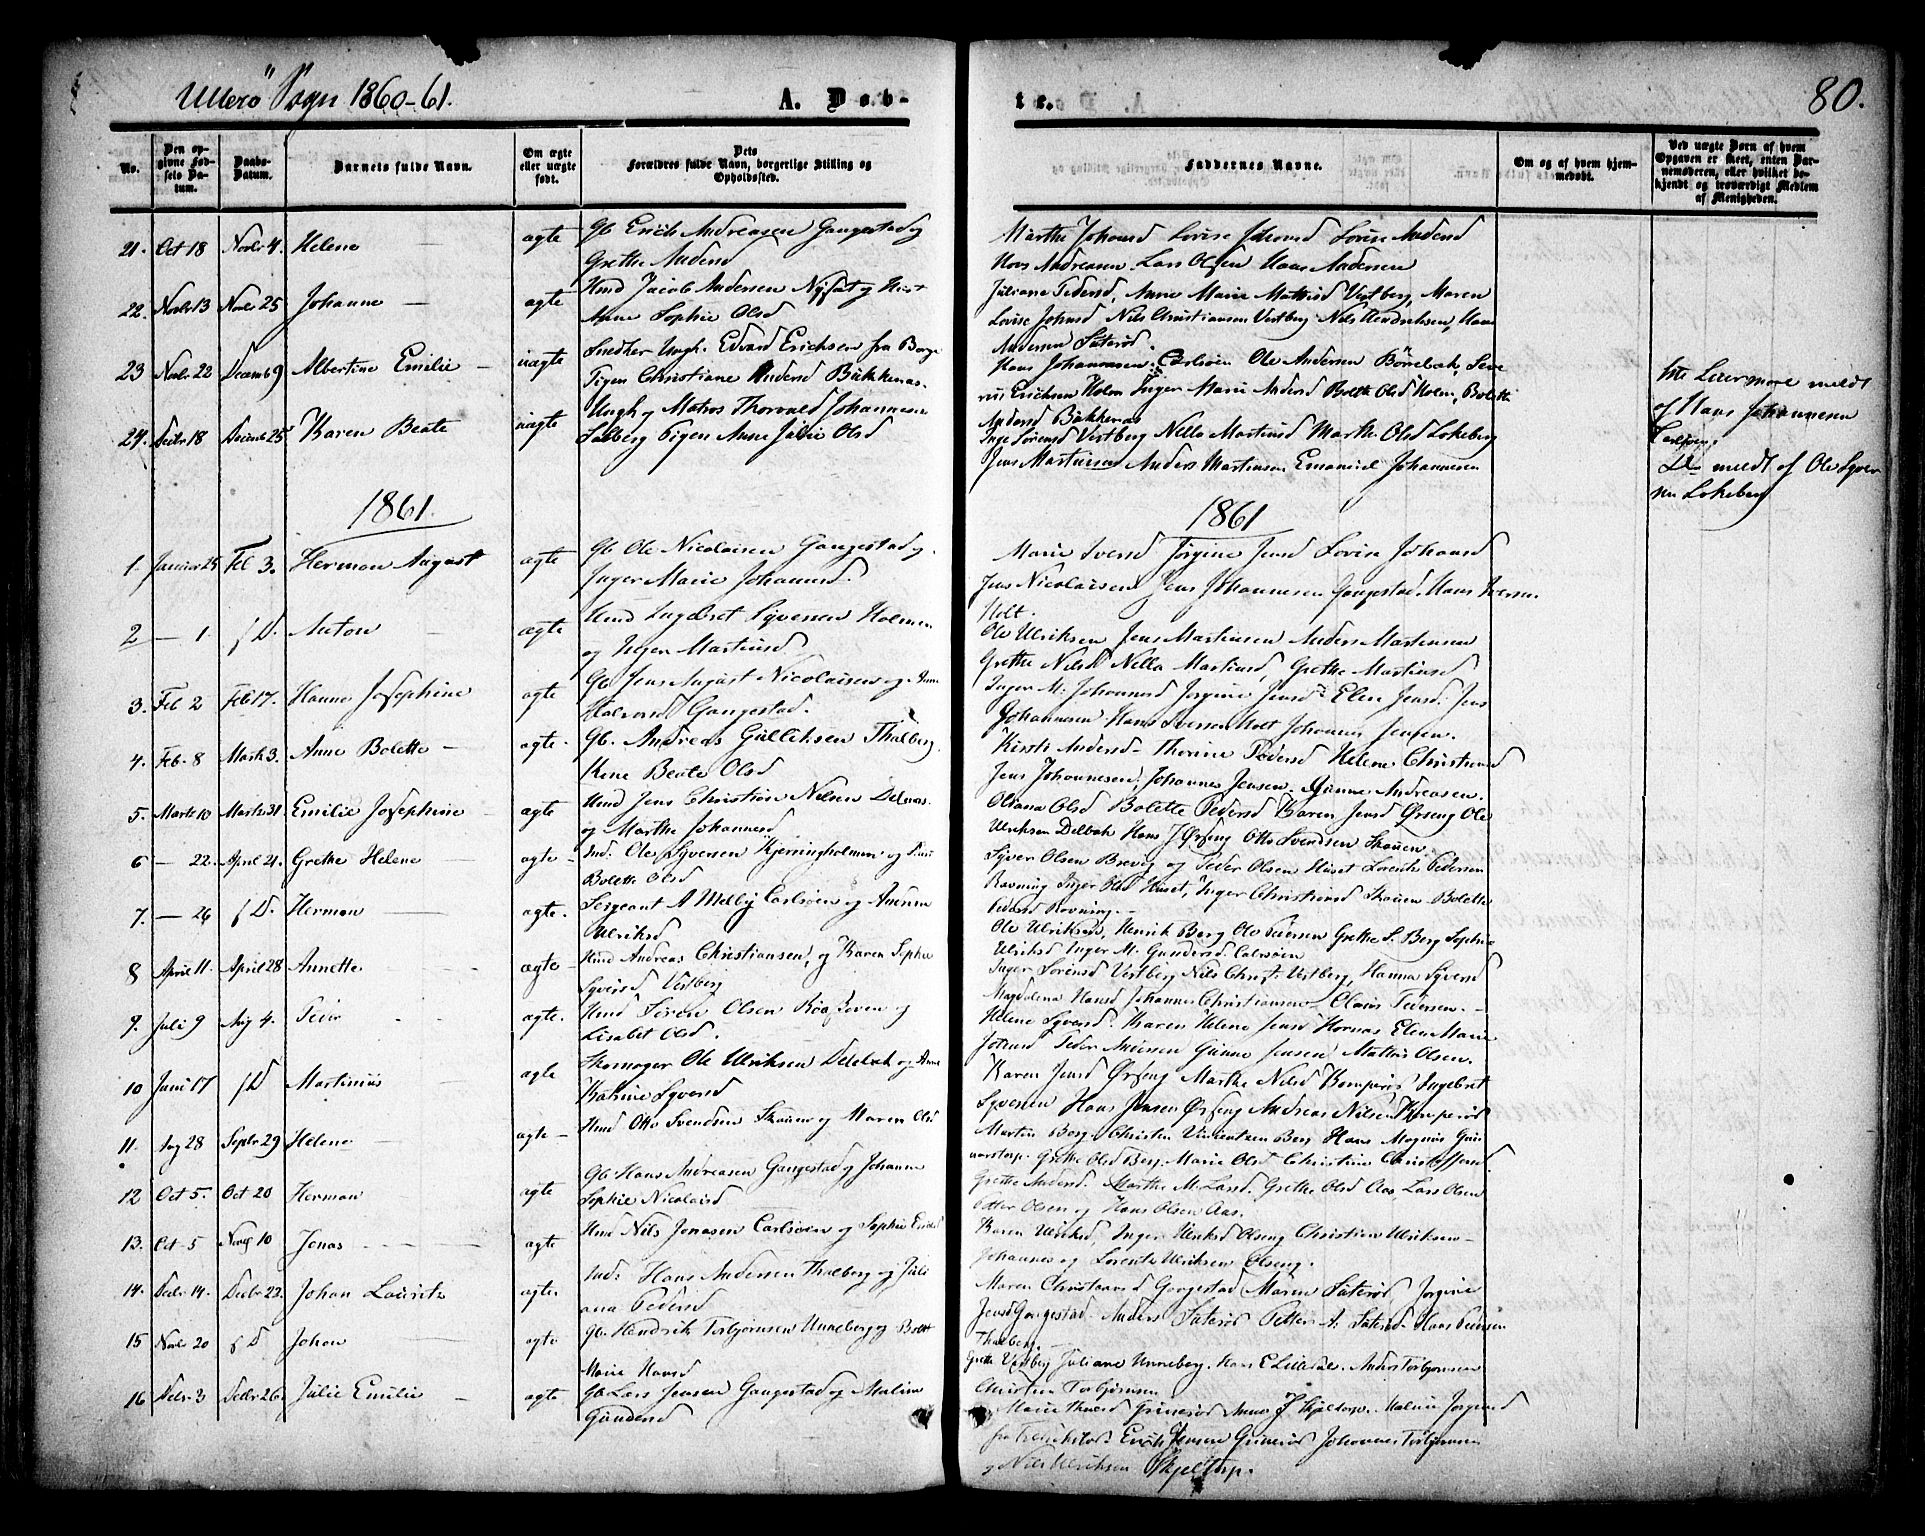 Ullerö Sogn 1860-61.
A. Døb-
te.
80.
No.
Den op-
givne Fød-
sels Da-
tum.
Daabs-
Datum.
Barnets fulde Navn.
Om ægte
eller uægte
født.
Dets
Forældres fulde Navn, borgerlige Stilling og
Opholdssted.
Faddernes Navne.
Om og af hvem hjem-
medøbt.
Ved uægte Børn af hvem
Opgaven er skeet, enten Bar-
nemoderen, eller hvilket be-
kjendt og troværdigt Medlem
af Menigheden.
21. Oct 18 Novbr 4. Helene — ægte Gb Erich Andreasen Gangestad og
Grethe Andersd
Marthe Johansd Lovise Johansd Lovise Andersd
Hans Andreasen. Lars Olsen Hans Andersen
22. Novbr 13 Novbr 25 Johanne — ægte Hmd Jacob Andersen
Anne Sophie Olsd
Juliane Pedersd, Anne Marie Mathisd Vestberg, Maren
Lovise Johnsd Nils Christiansen Vestberg Nils Hendriksen, Hans
Andersen Säterød.
23 Novbr 22 Decemb 9 Albertine Emilie — uægte Snedker Ungk. Edvard Erichsen fra Borge
Pigen Christiane Andersd Bükkenas.
Hans Johannessen Carlsöen Ole Andersen Seve
rin Erichsen Holm Inger Marie Andersd Bolette Olsd Holm, Bolette
Andersd Bükkenas
meldt
af Hans Johannesen
Carlsöen.
24. Decbr 18 Decemb 25 Karen Beate uægte Ungk og Matros Thorvald Johannesen
Solberg Pigen Anne Julie Olsd
Inge Sörensd Vestberg Nella Martinsd Marthe Olsd Lokeberg
Jens Martinsen Anders Martinsen Emanuel Johannesen
Do meldt af Ole Syver
sen Lokeberg
1861.
1861
1. Januar 25 Feb 3. Herman August ægte Gb Ole Nicolaisen Gangestad og
Inger Marie Johannesd.
Marie Iversd Jörgine Jensd Lovise Johansd
Jens Nicolaisen Jens Johannesen Gangestad. Hans Iversen
Holt.
2 — 1. f D. Anton — ægte Hmd Ingebret Syversen Holmen
og Inger Martinsd
Ole Ulriksen Jens Martinsen Anders Martinsen
Grethe Nilsd Nella Martinsd, Grethe Martinsd
3. Feb 2 Feb 17. Hanne Josephine ægte Gb Jens August Nicolaisen og Anne
Halvorsd Gangestad.
Inger M. Johannesd Jörgine Jensd Elen Jensd. Jens
Johannesen Hans Iversen Holt Johannes Jensen.
4. Feb 8 Marts 3. Anne Bolette — ægte. Gb. Andreas Gulliksen Thalberg.
Rene Beate Olsd
Kirsti Andersd- Thorine Pedersd Helene Christiansd
Jens Johannesen. Johannes Jensen. Gunne Andreasen.
5. Marts 10 Marts 31. Emilie Josephine — ægte Hmd Jens Christian Nilsen
og Marthe Johannesd
Oliana Olsd Bolette Pedersd Karen Jensd Örseng Ole
Ulriksen Delbak Hans J Örseng Otto Svendsen Skauen.
6 — 22. April 21. Grethe Helene — ægte — Ind. Ole Syversen Kjerringholmen og
Bolette Olsd
Syver Olsen Brevig og Peder Olsen Huset Lorentz Pedersen
Rovning Inger Olsd Huset, Inger Christiansd Skauen Bolette
Pedersd Rovning. —
7. — 26 f D. Herman — ægte. Sergeant A Melby Carlsöen og
Ulriksd
Ole Ulriksen, Henrik Berg Ole Petersen Grethe S. Berg Sophie
Ulriksd Inger M. Gundersd Carlsöen
8 April 11. April 28 Annette ægte — Hmd Andreas Christiansen, og Karen Sophie
Syversd Vestberg
Inger Sörensd Vestberg Nils Christ. Vestberg, Hanna Syversd
Magdalena Hansd Johannes Christiansen Claus Pedersen. —
9. Juli 9 Aug 4. Peter ægte. Hmd Sören Olsen og
Lisabet Olsd.
Helene Syversd. Karen Helene Jensd Hornas Elen Marie
Johnsd Peder Andersen Gunne Jensen Mathis Olsen.
10 Juni 17 f D Martinus ægte Skomager Ole Ulriksen Delebak og Anne
Katrine Syversd
Karen Jensd Örseng Marthe Nilsd Kamperöd Ingebret
Syversen Hans Jensen Örseng Andreas Nilsen Kamperöd
11. Aug 28 Septbr 29 Helene — ægte — Hmd Otto Svendsen Skauen og Maren Olsd
Martin Berg. Christen Vincentsen Berg Hans Magnus Gun
narstorp. Grethe Olsd Berg. Marie Olsd Christine Christoffersd.
12 Oct 5. Oct 20 Herman ægte Gb. Hans Andreasen Gangestad og Johanne
Sophie Nicolaisd
Grethe Andersd. Marthe M. Larsd. Grethe Olsd Aas, Lars Olsen
Petter Olsen og Hans Olsen Aas.
13. Oct 5 Novbr 10 Jonas ægte Hmd Nils Jonasen Carlsöen og Sophie
Karen Ulriksd, Inger Ulriksd Olseng Christian Ulriksen —
Johannes og Lorentz Ulriksen Olseng.
14. Decbr 14. Decbr 22. Johan Lauritz ægte. Inds Hans Andersen Thalberg og Juli
ana Pedersd
Maren Christiansd Gangestad Maren Säteröd Jörgine
Jensd Gangestad. Anders Säteröd Petter A. Säteröd Hans Pedersen
Thalberg. —
15 Novbr 20 f D Johan ægte Gb. Hendrik Torbjörnsen Unneberg og Bolette
Marie Hansd
Grethe Vestberg Juliane Unneberg. Hans E Lilledal. Anders Torbjörnsen
Christian Torbjörnsen
16 Decbr 3 Decbr 26 Julie Emilie — ægte Gb Lars Jensen Gangestad og Maline
Gundersd
Marie Grineröd Anne J Skjeltorp. Maline Jörgensd
fra Fredrikstad Erich Jensen Grineröd Johannes Torbjörnsen
og Nils Ulriksen Skjeltorp.